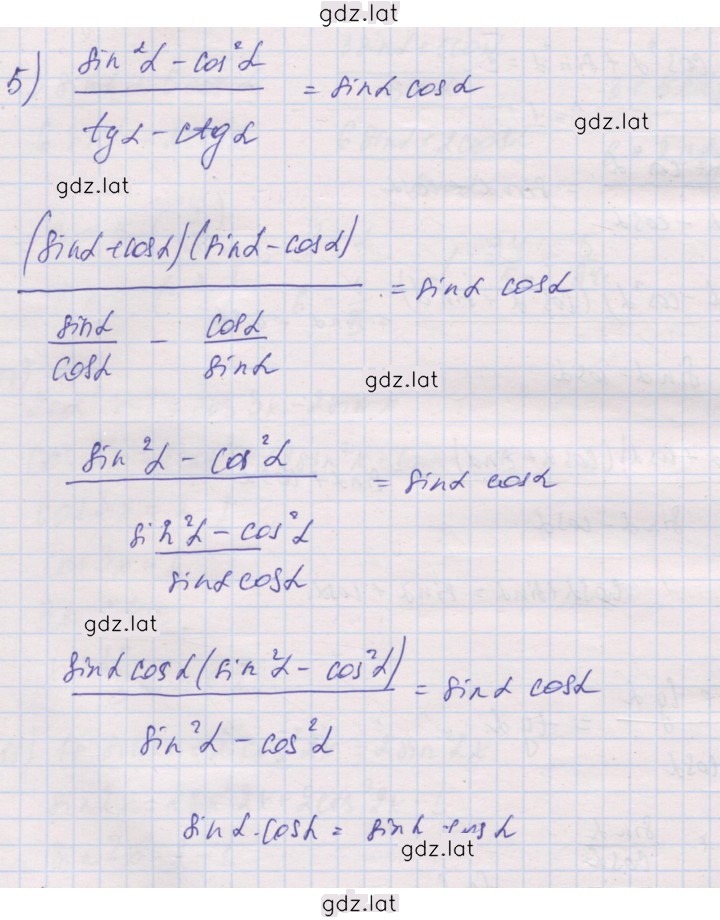 gdz.lat
5) (sin²α − cos²α)/(tgα − ctgα) = sinα cosα
gdz.lat
gdz.lat
((sinα + cosα)(sinα − cosα))/(sinα/cosα − cosα/sinα) = sinα cosα
gdz.lat
(sin²α − cos²α)/((sin²α − cos²α)/(sinα cosα)) = sinα cosα
gdz.lat
(sinα cosα(sin²α − cos²α))/(sin²α − cos²α) = sinα cosα
sinα · cosα = sinα cosα
gdz.lat
gdz.lat